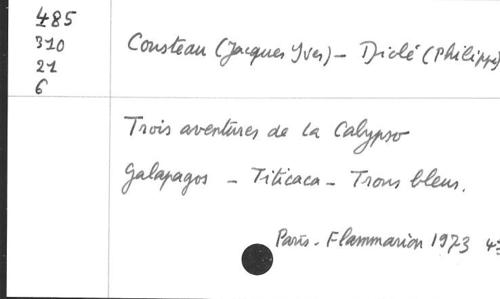 485
310
21
6
Cousteau (Jacques Yves) - Diolé (Philippe)
Trois aventures de la Calypso
Galapagos - Titicaca - Trous bleus.
Paris - Flammarion 1973